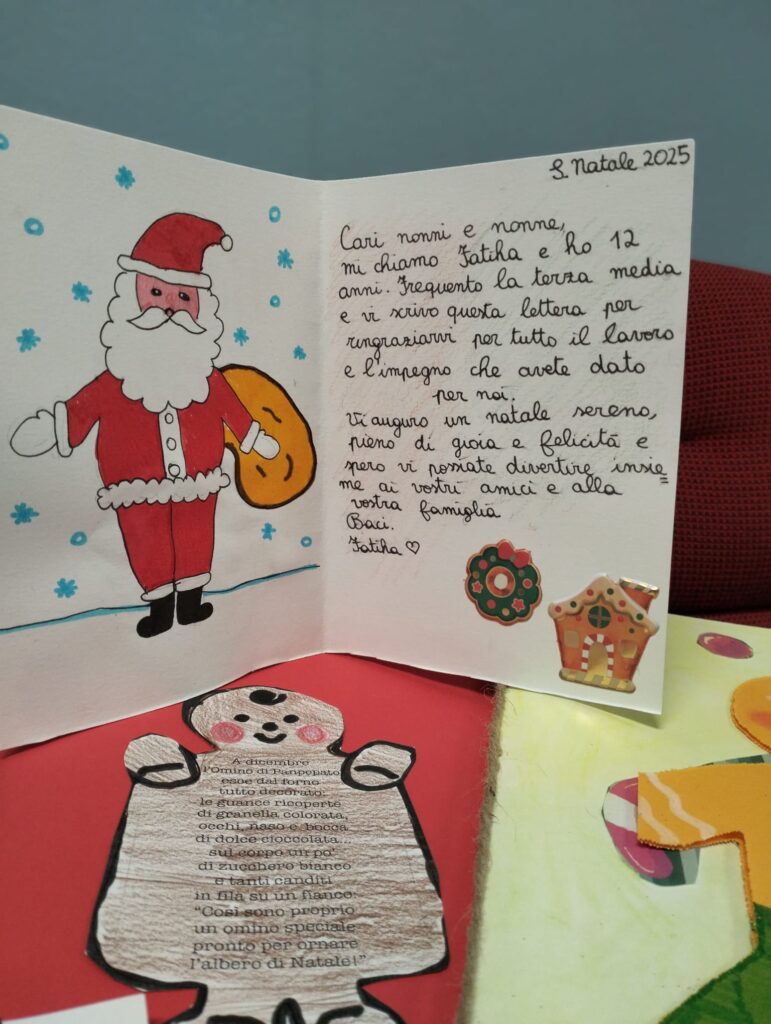 S. Natale 2025
Cari nonni e nonne,
mi chiamo Fatiha e ho 12
anni. Frequento la terza media
e vi scrivo questa lettera per
ringraziarvi per tutto il lavoro
e l'impegno che avete dato
per noi.
Vi auguro un natale sereno,
pieno di gioia e felicità e
spero vi possiate divertire insie
me ai vostri amici e alla
vostra famiglia
Baci.
Fatiha ♡
A dicembre
l'Omino di Panpepato
esce dal forno
tutto decorato:
le guance ricoperte
di granella colorata,
occhi, naso e bocca
di dolce cioccolata...
sul corpo un po'
di zucchero bianco
e tanti canditi
in fila su un fianco:
"Così sono proprio
un omino speciale
pronto per ornare
l'albero di Natale!"